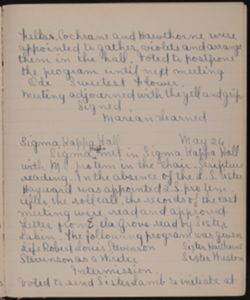 Keller, Cochrane and Hawthorne were
appointed to gather violets and arrange
them in the hall. Voted to postpone
the program until next meeting
Ode Sweetest Flower
Meeting adjourned with the yell and grip
Signed
Marian Learned
Sigma Kappa Hall May 24
Sigma met in Sigma Kappa Hall
with M. pro tem in the chair. Scripture
reading. In the absence of the L.S. Sister
Hayward was appointed L.S. pro tem.
After the roll call, the records of the last
meeting were read and approved
Letter from La Grove read by Sister
The following program was given
Life Robert Louis Stevenson Sister
Stevenson as a Writer Sister Weston
Intermission
Voted to send Sister Lamb to initiate at